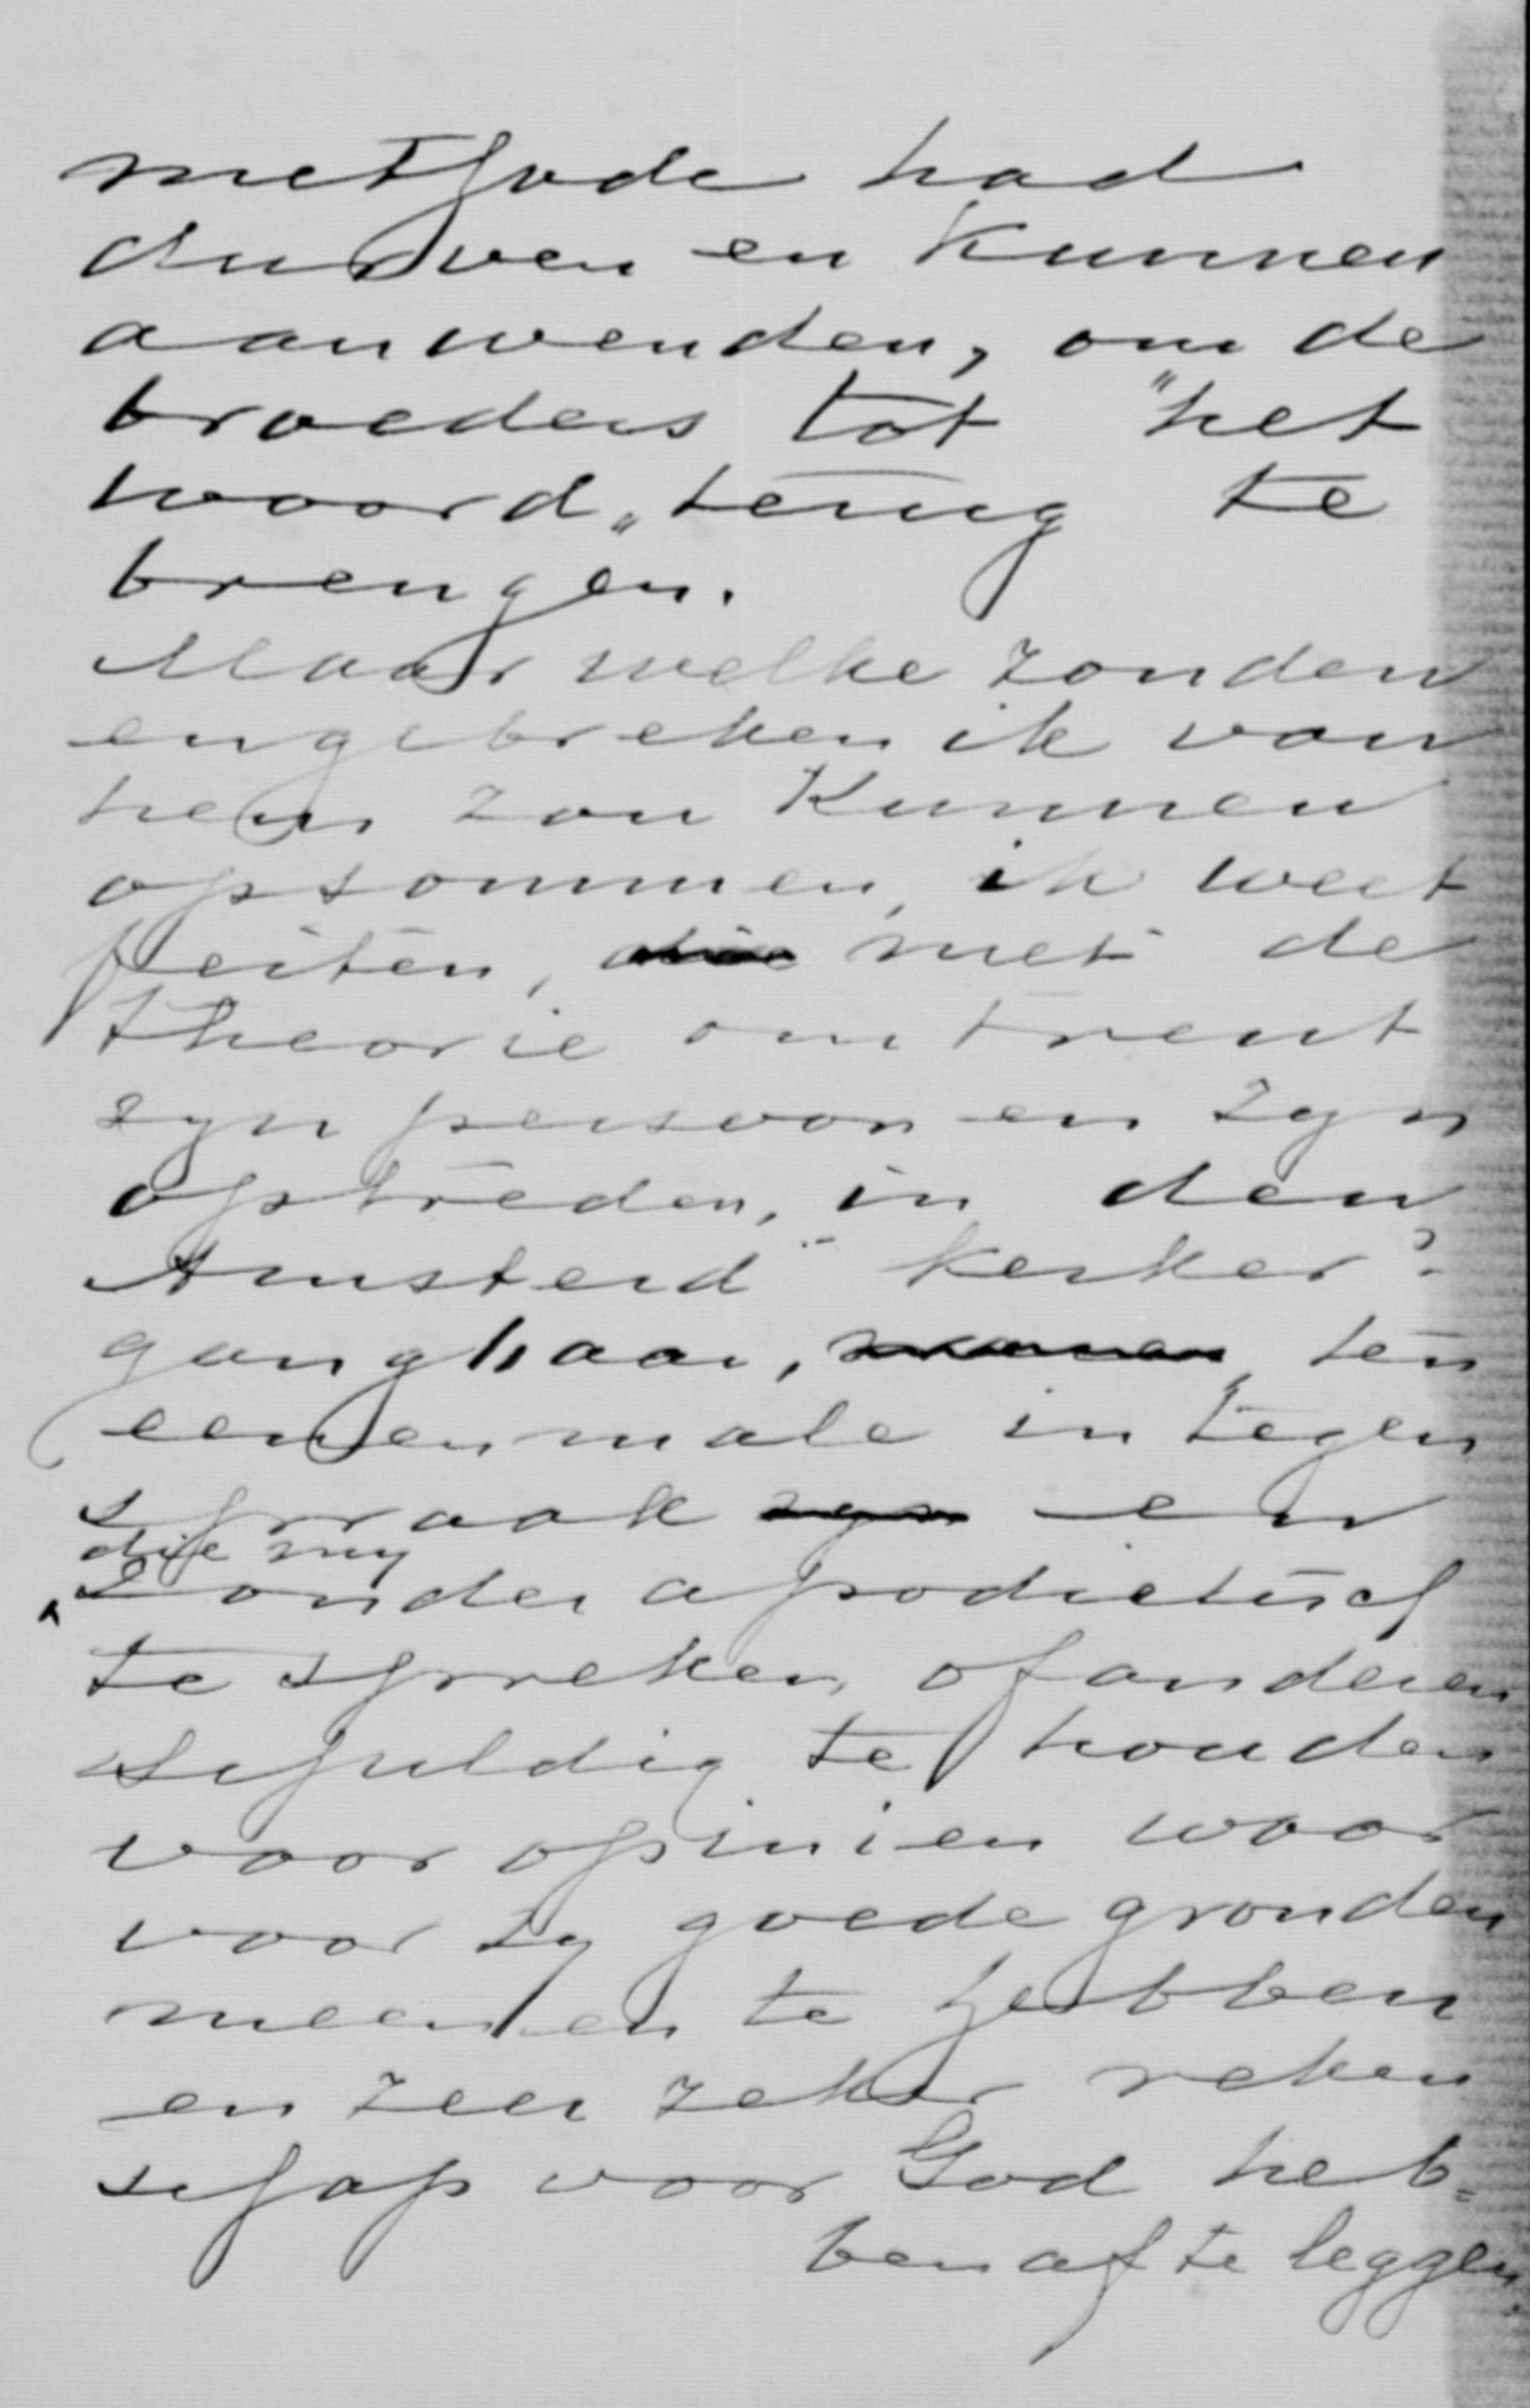 methode had
durven en kunnen
aanwenden, om de
broeders tot "het
woord„ terug te
brengen.
Maar welke zonden
en gebreken ik van
hem zou kunnen
opsommen, ik weet
feiten, die met de
theorie omtrent
zyn persoon en zyn
optreden, in den
Amsterd kerker?
gangbaar, ten
eenenmale in tegen
spraak zyn en
die my
zonder apodictisch
te spreken of anderen
schuldig te houden
voor opinien waar
voor zy goede gronden
meenen te hebben
en zeer zeker reken
schap voor God heb=
ben af te leggen.